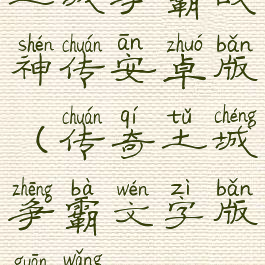 shén chuán ān zhuó bǎn
神传安卓版
chuán qí tǔ chéng
（传奇土城
zhēng bà wén zì bǎn
争霸文字版
guān wǎng